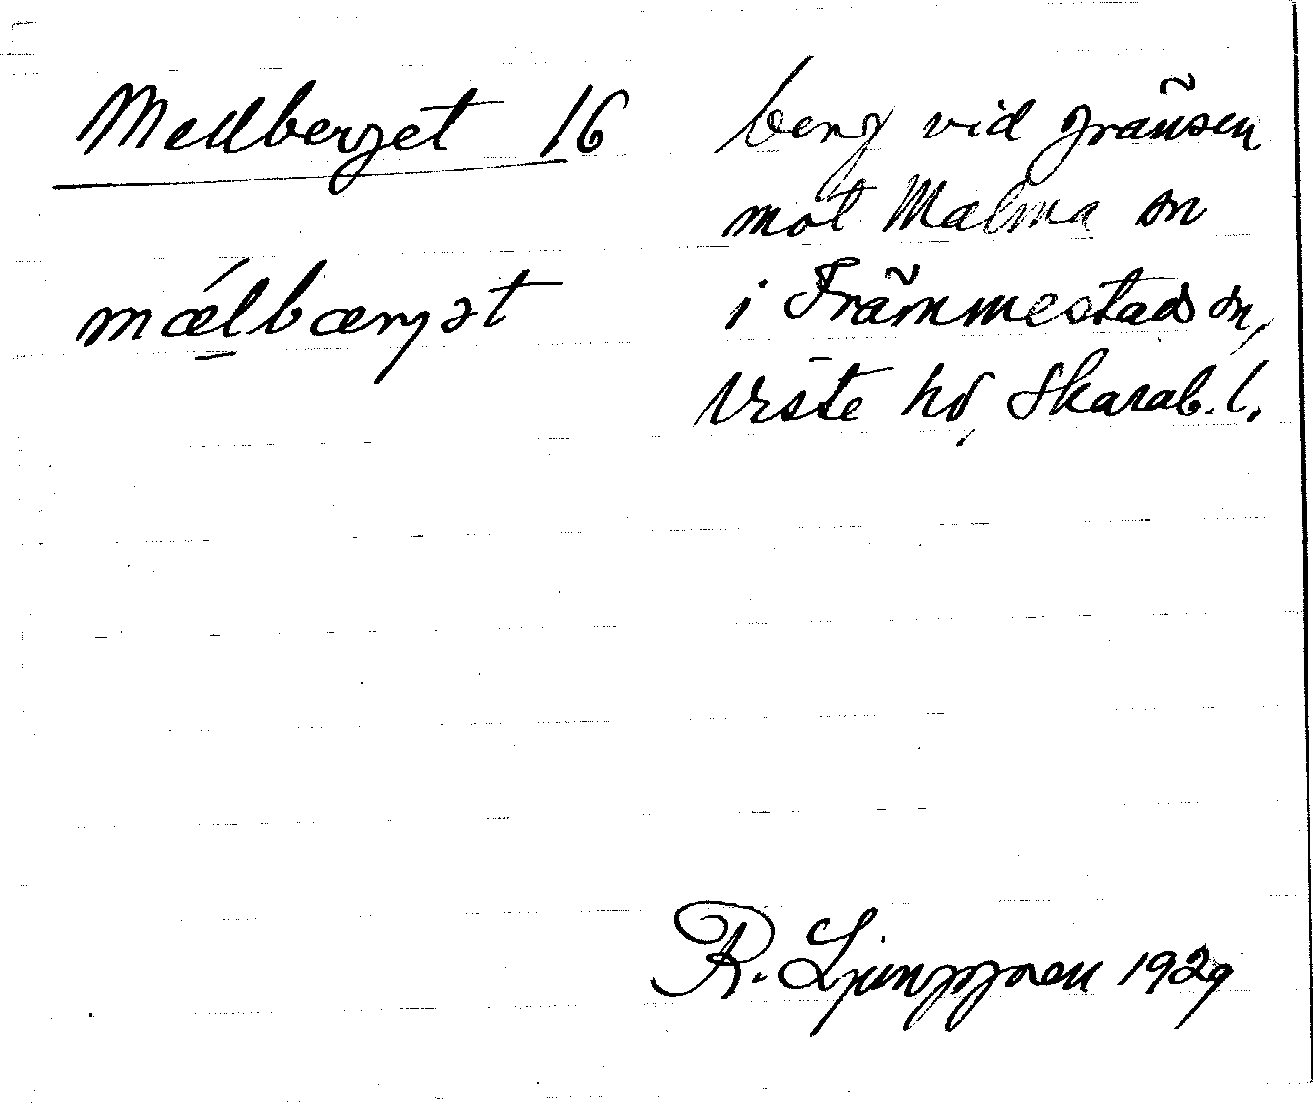 Mellberget 16
mǽlbærgət
berg vid gränsen
mot Malma sn
i Främmestads sn,
Viste hd, Skarab. l.
R. Ljunggren 1929